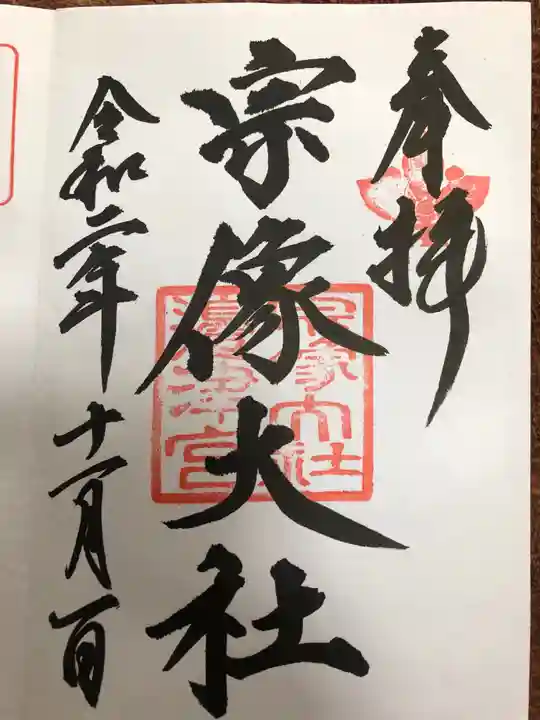 奉拝
宗像大社
宗像大社
邊津宮
令和二年
十一月一日